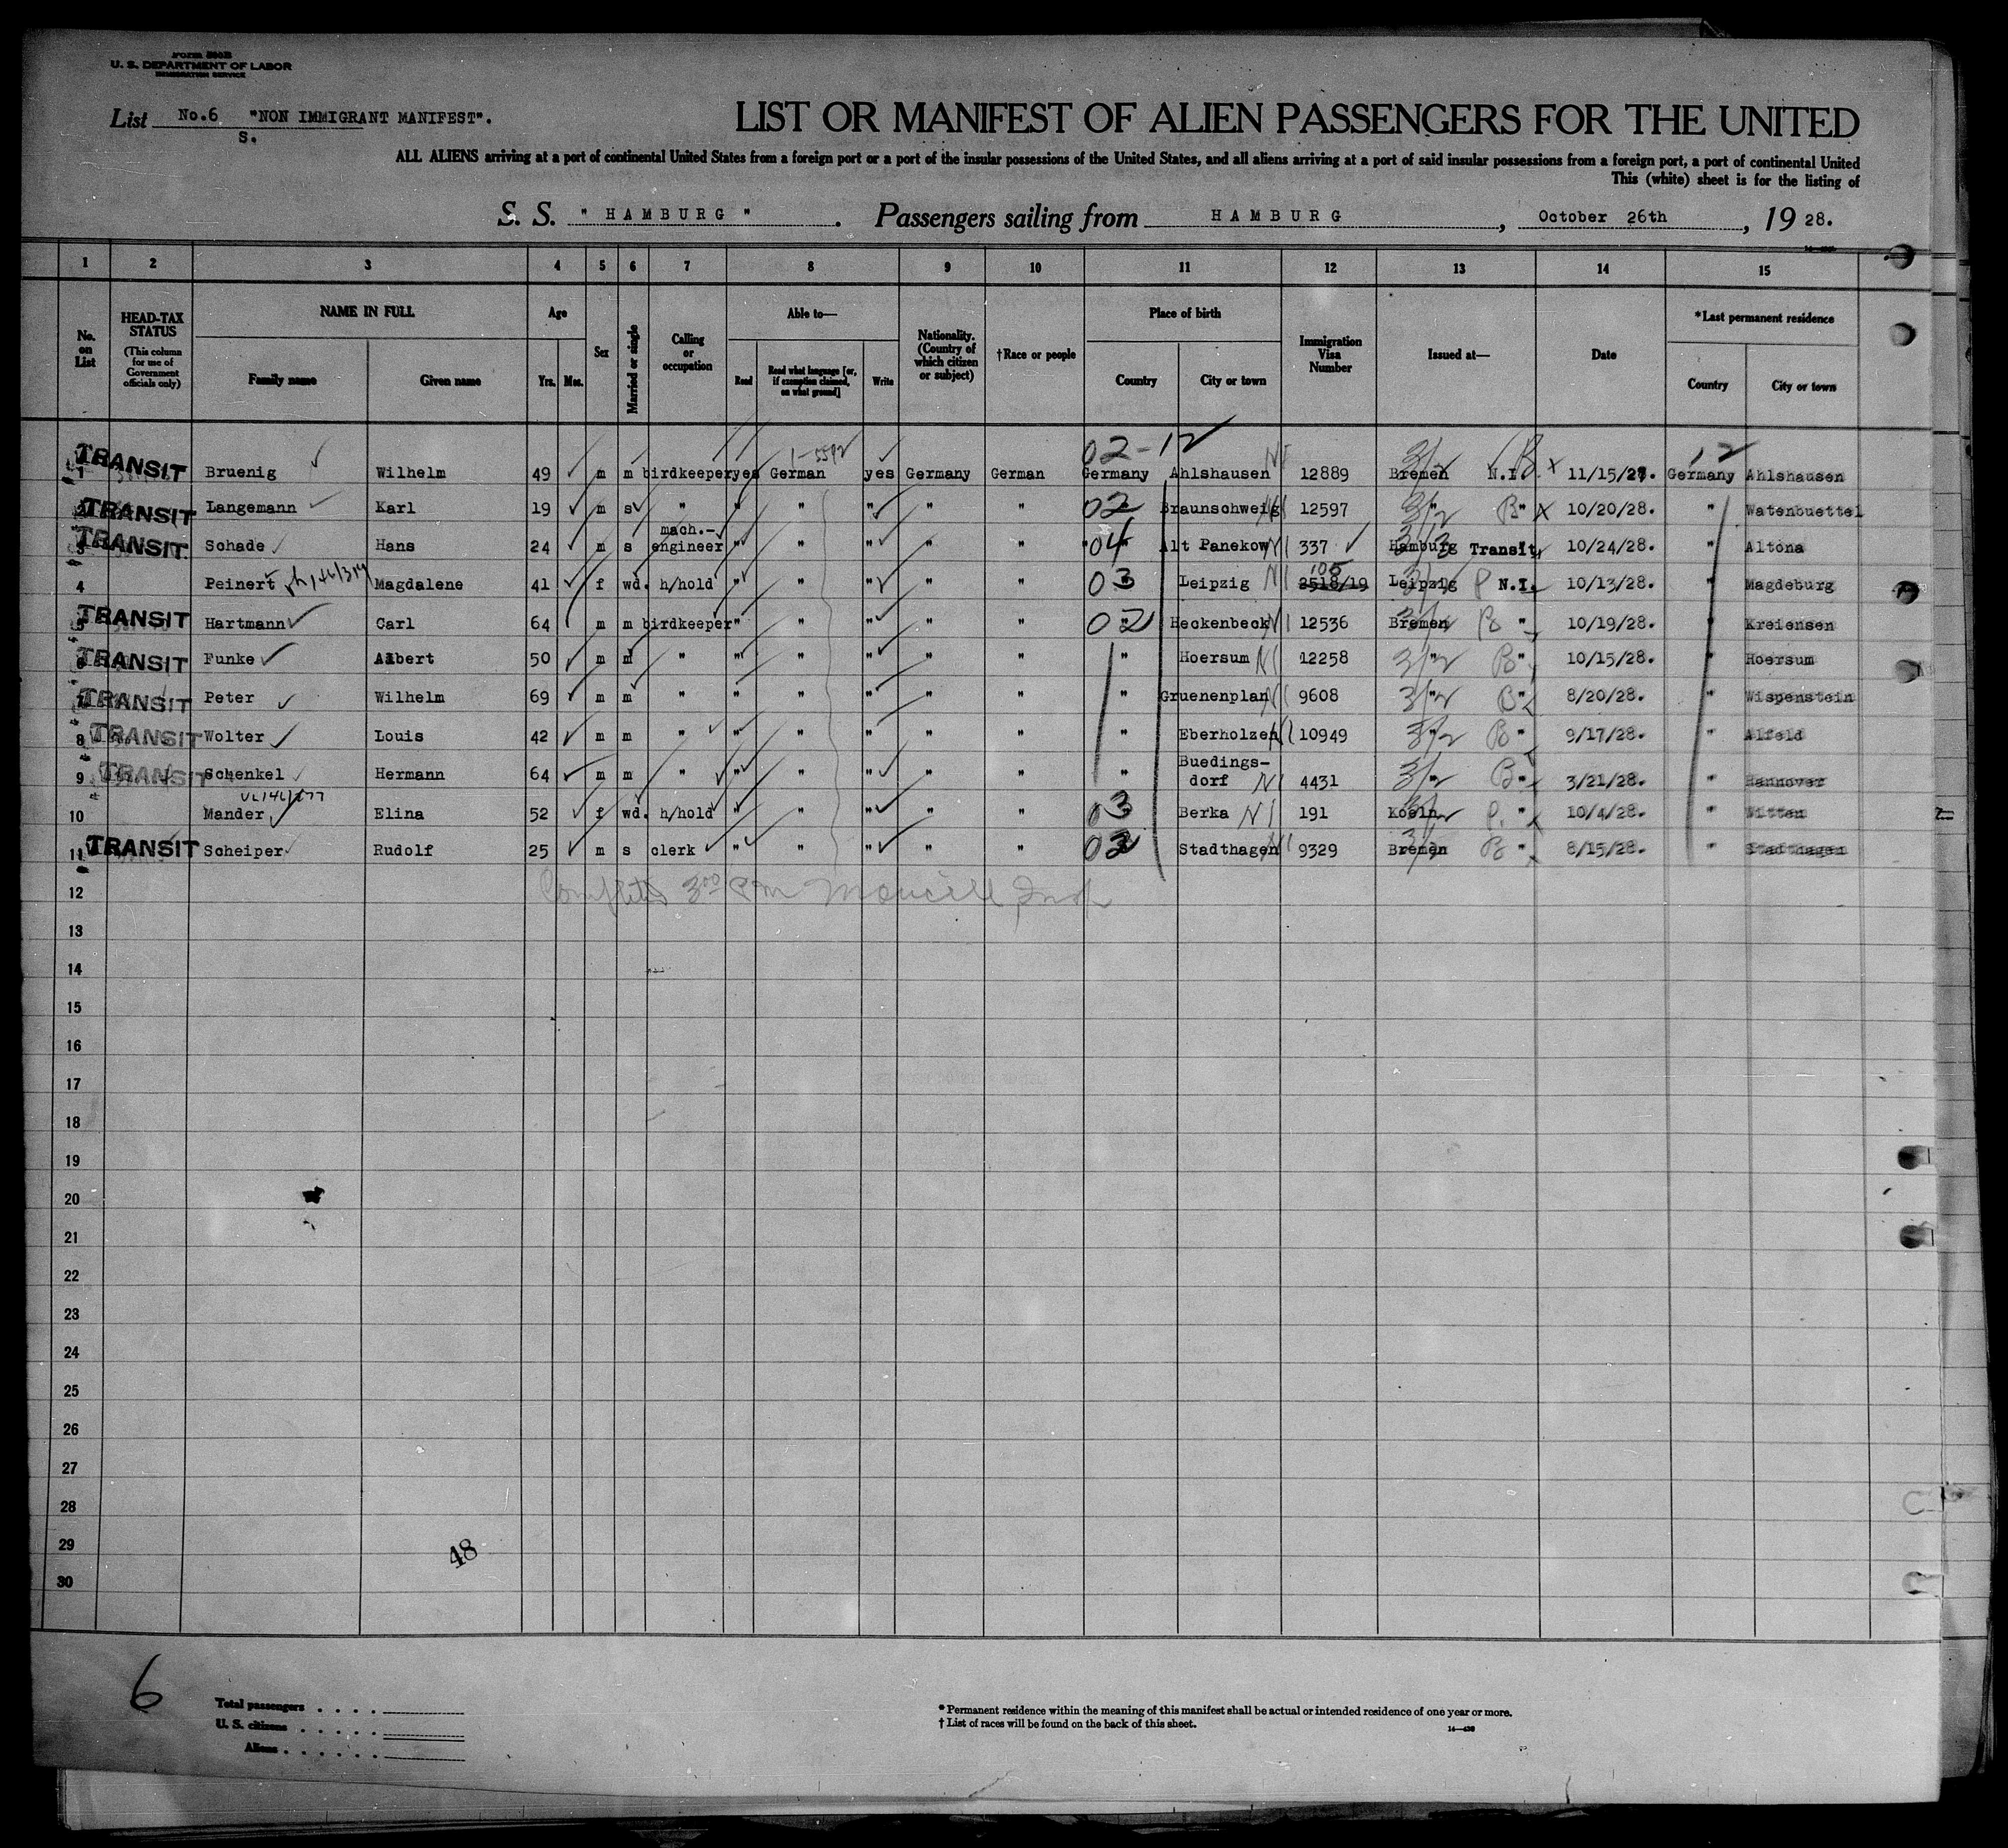 Form 500B
U. S. DEPARTMENT OF LABOR
IMMIGRATION SERVICE
List No.6 "NON IMMIGRANT MANIFEST".
S.
LIST OR MANIFEST OF ALIEN PASSENGERS FOR THE UNITED
ALL ALIENS arriving at a port of continental United States from a foreign port or a port of the insular possessions of the United States, and all aliens arriving at a port of said insular possessions from a foreign port, a port of continental United
This (white) sheet is for the listing of
S. S. " HAMBURG ". Passengers sailing from HAMBURG, October 26th, 19 28.
1 2 3 4 5 6 7 8 9 10 11 12 13 14 15
No. on List
HEAD-TAX STATUS (This column for use of Government officials only)
NAME IN FULL
Family name Given name
Age
Yrs. Mos.
Sex
Married or single
Calling or occupation
Able to—
Read Read what language [or, if exemption claimed, on what ground] Write
Nationality. (Country of which citizen or subject)
†Race or people
Place of birth
Country City or town
Immigration Visa Number
Issued at—
Date
*Last permanent residence
Country City or town
02-12 12
TRANSIT 1 Bruenig Wilhelm 49 m m birdkeeper yes German yes Germany German Germany Ahlshausen NI 12889 Bremen N.I. B x 11/15/27. Germany Ahlshausen
TRANSIT 2 Langemann Karl 19 m s " " " " " " 02 Braunschweig NI 12597 3/2 " B " x 10/20/28. " Watenbuettel
TRANSIT 3 Schade Hans 24 m s mach.-engineer " " " " " 04 " Alt Panekow NI 337 Hamburg 3/3 Transit 10/24/28. " Altona
4 Peinert Magdalene 41 f wd. h/hold " " " " " 03 Leipzig NI 2518/19 105 Leipzig P N.I. 10/13/28. " Magdeburg
TRANSIT 5 Hartmann Carl 64 m m birdkeeper " " " " " 02 Heckenbeck NI 12536 Bremen 3/2 B " 10/19/28. " Kreiensen
TRANSIT 6 Funke Albert 50 m m " " " " " " " Hoersum NI 12258 3/2 " B " 10/15/28. " Hoersum
TRANSIT 7 Peter Wilhelm 69 m m " " " " " " " Gruenenplan NI 9608 3/2 " B " 8/20/28. " Wispenstein
TRANSIT 8 Wolter Louis 42 m m " " " " " " " Eberholzen NI 10949 3/2 " B " 9/17/28. " Alfeld
TRANSIT 9 Schenkel Hermann 64 m m " " " " " " " Buedings-dorf NI 4431 3/2 " B " 3/21/28. " Hannover
10 Mander Elina 52 f wd. h/hold " " " " " 03 Berka NI 191 Koeln P. " 10/4/28. " Witten
TRANSIT 11 Scheiper Rudolf 25 m s clerk " " " " " 02 Stadthagen NI 9329 Bremen B " 8/15/28. " Stadthagen
12
13
14
15
16
17
18
19
20
21
22
23
24
25
26
27
28
29
30
48
6
Total passengers
U. S. citizens
Aliens
* Permanent residence within the meaning of this manifest shall be actual or intended residence of one year or more.
† List of races will be found on the back of this sheet.
14—430